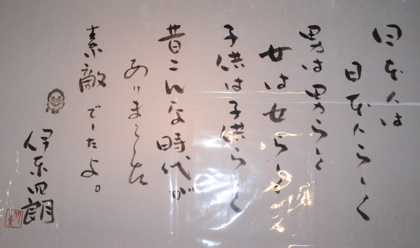 日本人は
日本人らしく
男は男らしく
女は女らしく
子供は子供らしく
昔こんな時代が
ありました
素敵でしたよ。
伊東四朗